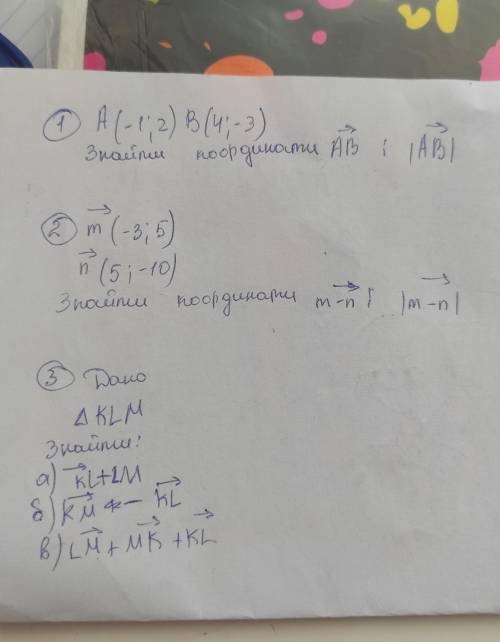 ① A(-1; 2) B(4; -3)
Знайти координати AB⃗ і |AB⃗|
② m⃗ (-3; 5)
n⃗ (5; -10)
Знайти координати m-n⃗ і |m-n⃗|
③ Дано
△KLM
Знайти:
а) KL⃗+LM
б) KM⃗ - KL⃗
в) LM⃗ + MK⃗ + KL⃗